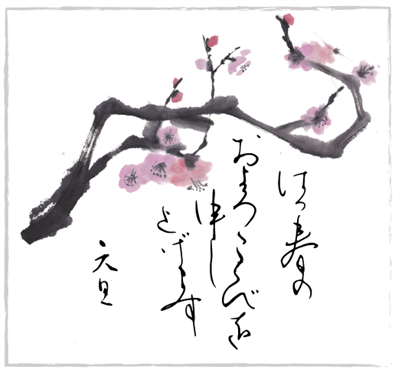 はつ春の
およろこびを
申し
上げます
元旦